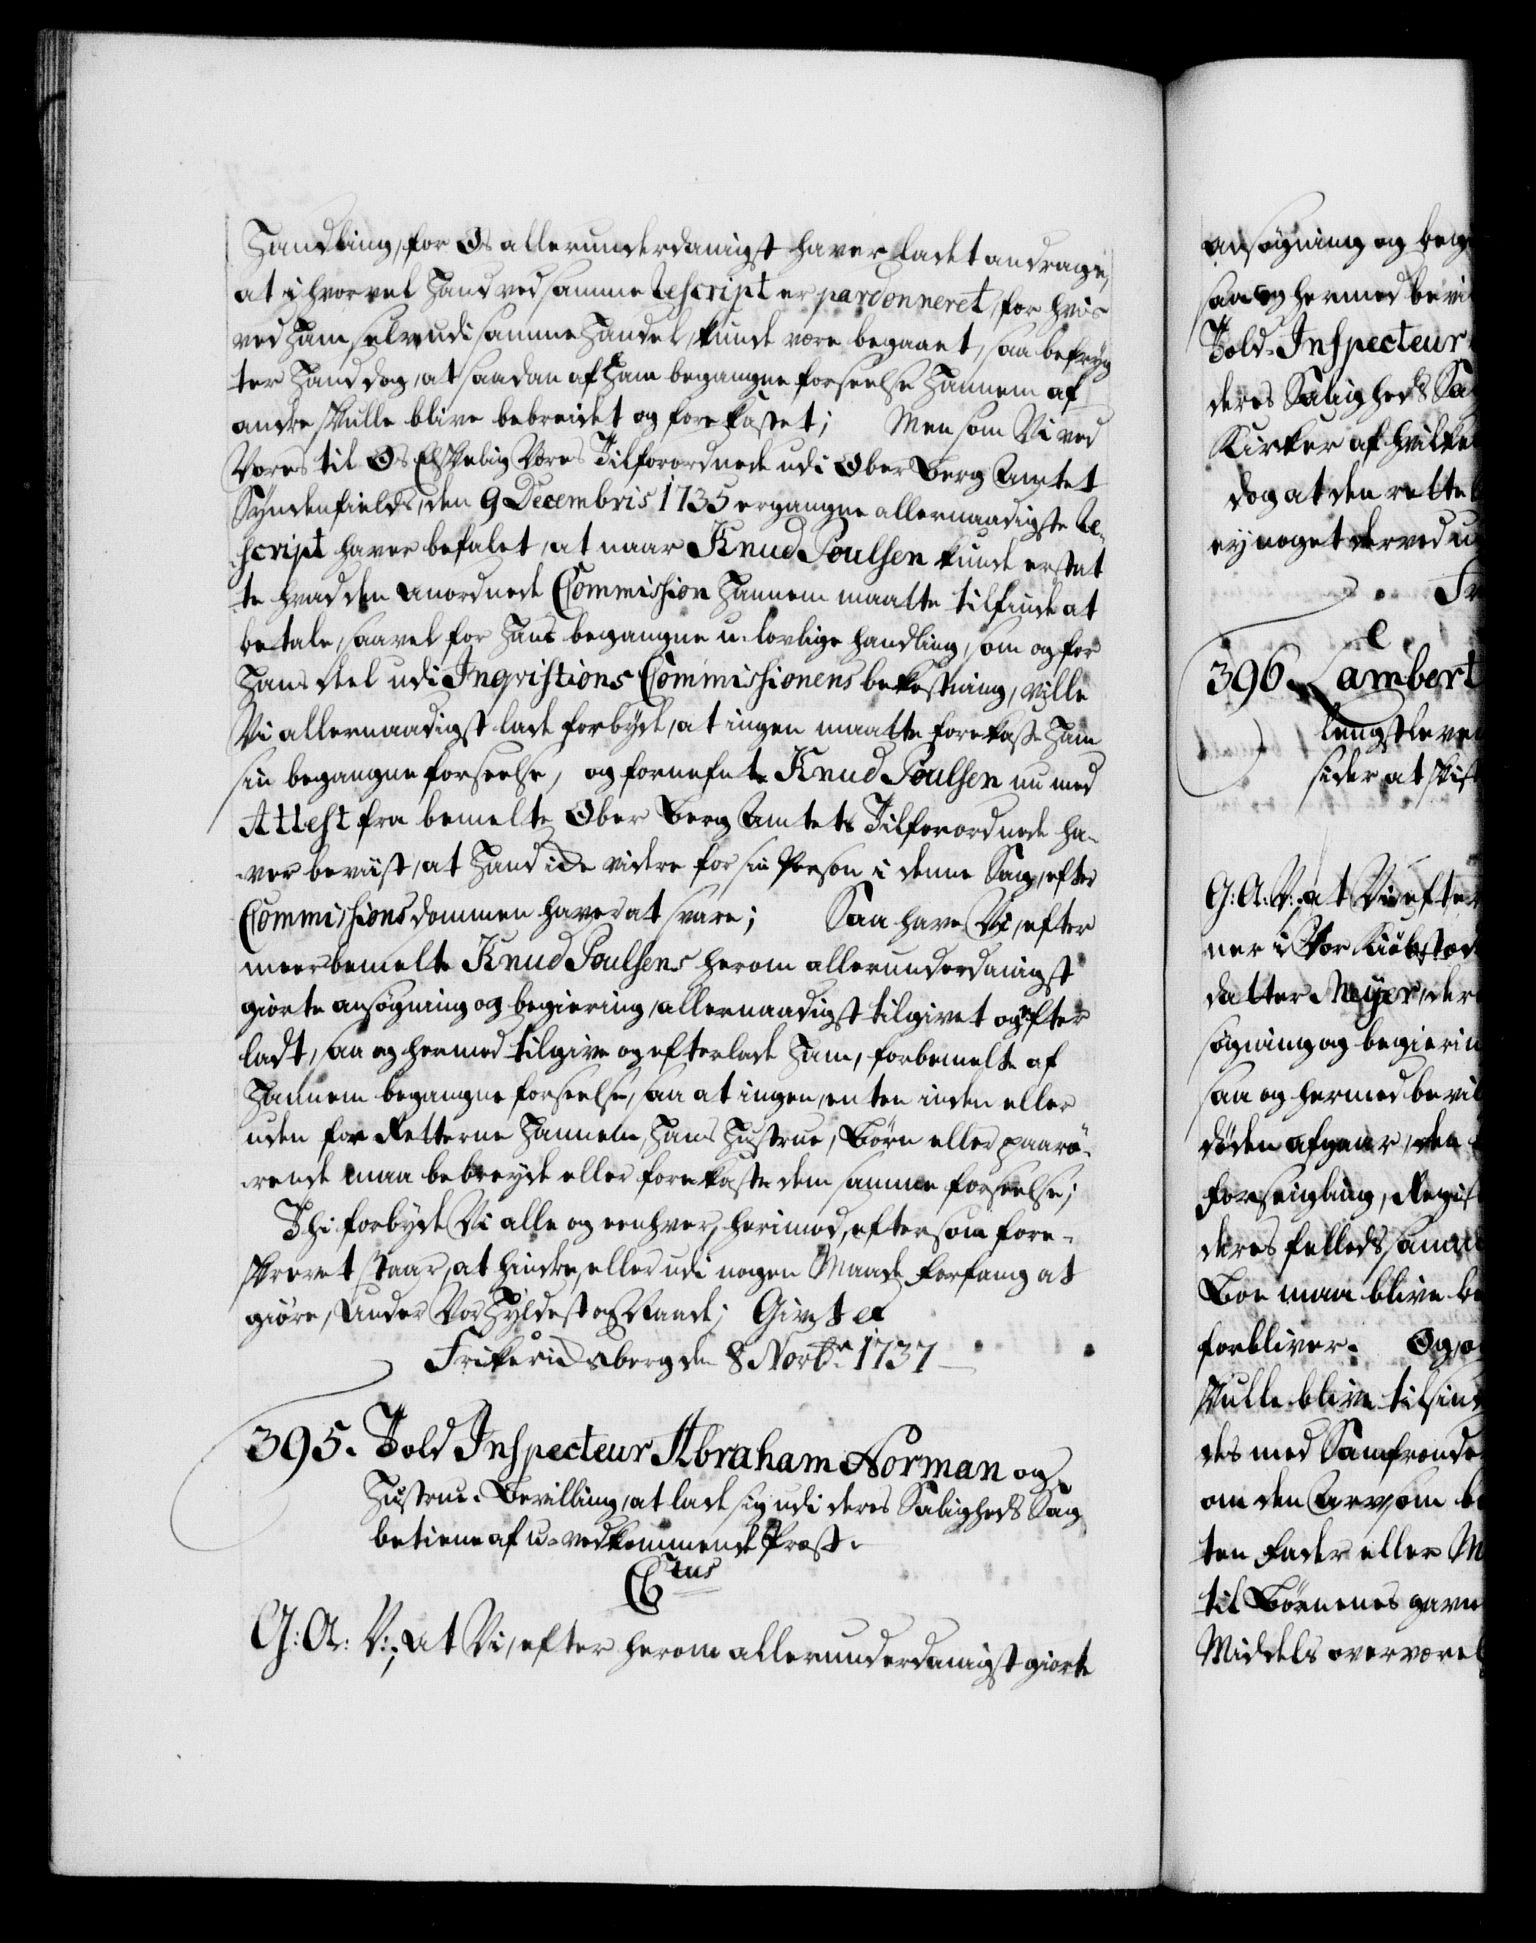 Handling, for Os allerunderdanigst haver ladet andrage,
at ihvorvel Hand ved samme Rescript er pardonneret, for hvis
ved Ham selv udi samme Handel kunde være begaaet, saa befryg-
ter Hand dog, at saadan af Ham begangne forseelse Hannem af
andre skulle blive bebreidet og forekastet; Men som Vi ved
Vores til Os Elskelig Vores Tilforordnede udi Ober Berg Amtet
Syndenfields, den 9 Decembris 1735 ergangne allernaadigste Re-
script haver befalet, at naar Knud Poulsen kunde erstat
te hvad den anordnede Commission Hannem maatte tilfinde at
betale, saavel for Hans begangne u-lovlige handling, som og for
Hans deel udi Inqvisitions Commissionens bekostning, ville
Vi allernaadigst lade forbyde, at ingen maatte forekaste Ham
sin begangne forseelse, og fornefnte Knud Poulsen nu med
Attest fra bemelte Ober Berg Amtets Tilforordnede ha-
ver beviist, at Hand icke videre for sin Person i denne Sag, efter
Commissions dommen haver at svare; Saa have Vi, efter
meerbemelte Knud Poulsens herom allerunderdanigst
giorte ansøgning og begiering, allernaadigst tilgivet og efter
ladt, saa og hermed tilgive og efterlade Ham, forbemelte af
Hannem begangne forseelse, saa at ingen, enten inden eller
uden for Retterne Hannem, Hans Hustrue, Børn eller paarø-
rende maa bebreyde eller forekaste dem samme forseelse;
Thi forbyde Vi alle og eenhver, herimod, eftersom fore-
skrevet staar, at hindre, eller udi nogen Maade forfang at
giøre, Under Vor Hyldest og Naade; Givet etc
Friderichsberg den 8 Novbr. 1737
395. Told Inspecteur Abraham Norman og
Hustrue. Bevilling, at lade sig udi deres Saligheds Sag
betiene af u-vedkommende Præst.
Ctus
G: A: V:, At Vi, efter herom allerunderdanigst giorte
ansøgning og beg
saa og hermed bevi
Told-Inspecteur
deres Saligheds Sa
Kirker af hvilke
dog at den rette
ej noget derved u
Fr
e
396. Lambert
lengstleve
sider at skif
G: A: V:, at Vi efter
ner i Vor Kiøbsted
datter Meyer, der
søgning og begierin
saa og hermed bevil
døden afgaar, den
forseigling, Regis
deres felleds, sam
Boe maa blive be
forbliver. Og, o
skulle blive tilsin
des med Samfrende
om den Arv, som b
ten Fader eller M
til Børnenes gavn
Middels overværel